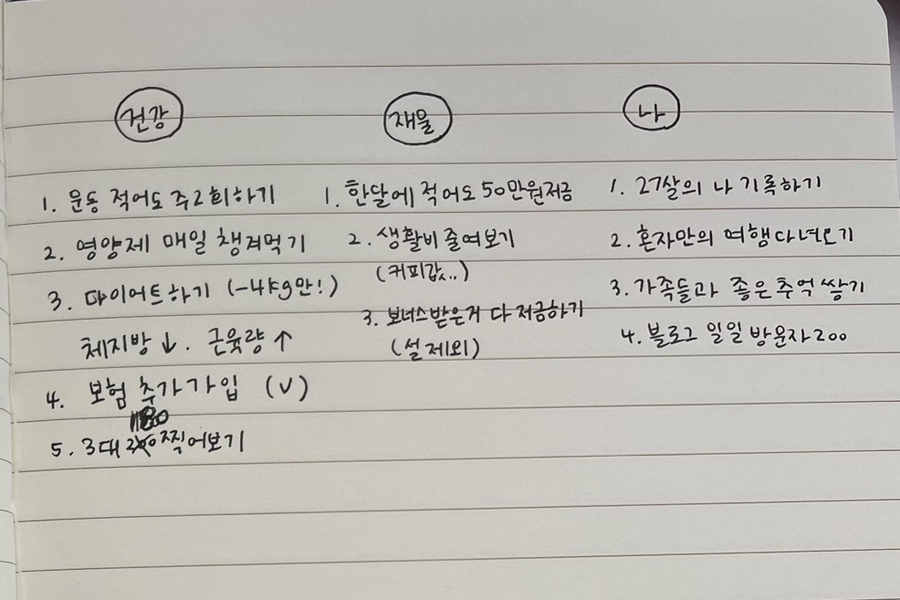 건강
1. 운동 적어도 주2회하기
2. 영양제 매일 챙겨먹기
3. 다이어트하기 (-4kg만!)
체지방↓. 근육량↑
4. 보험 추가가입 (V)
5. 3대 180 찍어보기
재물
1. 한달에 적어도 50만원저금
2. 생활비 줄여보기
(커피값..)
3. 보너스받은거 다 저금하기
(설 제외)
나
1. 27살의 나 기록하기
2. 혼자만의 여행다녀오기
3. 가족들과 좋은추억 쌓기
4. 블로그 일일 방문자 200